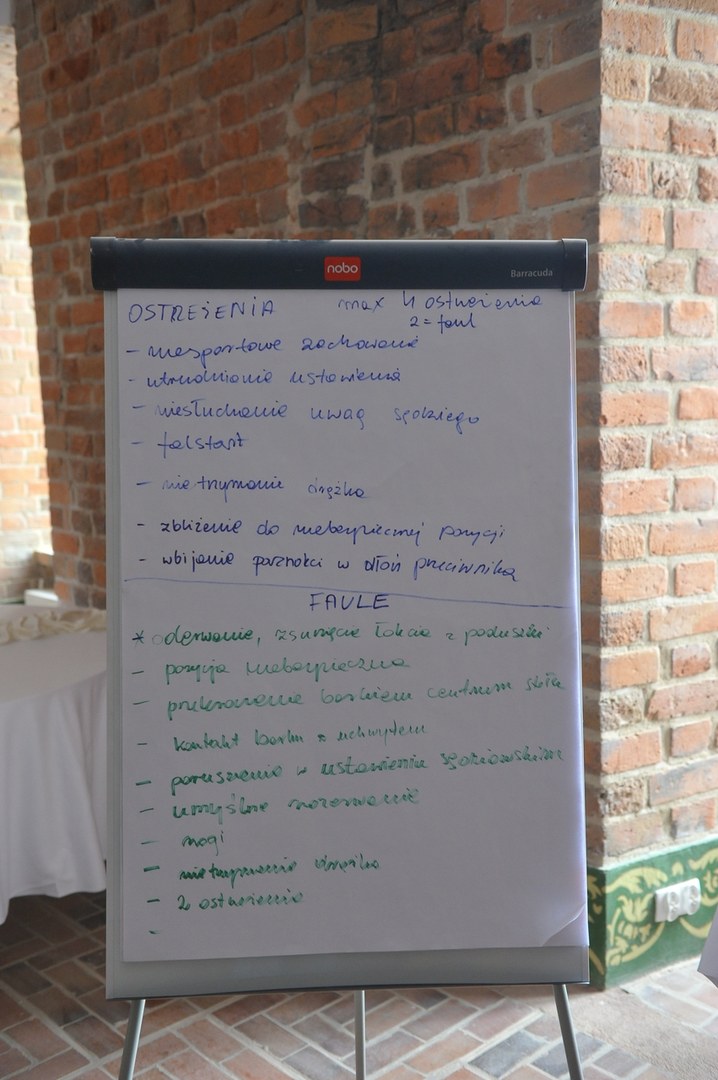 nobo
Barracuda
OSTRZEŻENIA max 4 ostrzeżenia
2 = faul
- niesportowe zachowanie
- utrudnianie ustawienia
- niesłuchanie uwag sędziego
- falstart
- nietrzymanie drążka
- zbliżenie do niebezpiecznej pozycji
- wbijanie paznokci w dłoń przeciwnika
FAULE
* oderwanie, zsunięcie łokcia z poduszki
- pozycja niebezpieczna
- przekroczenie barkiem centrum stołu
- kontakt barku z uchwytem
- poruszenie w ustawieniu sędziowskim
- umyślne rozerwanie
- nogi
- nietrzymanie drążka
- 2 ostrzeżenia
-